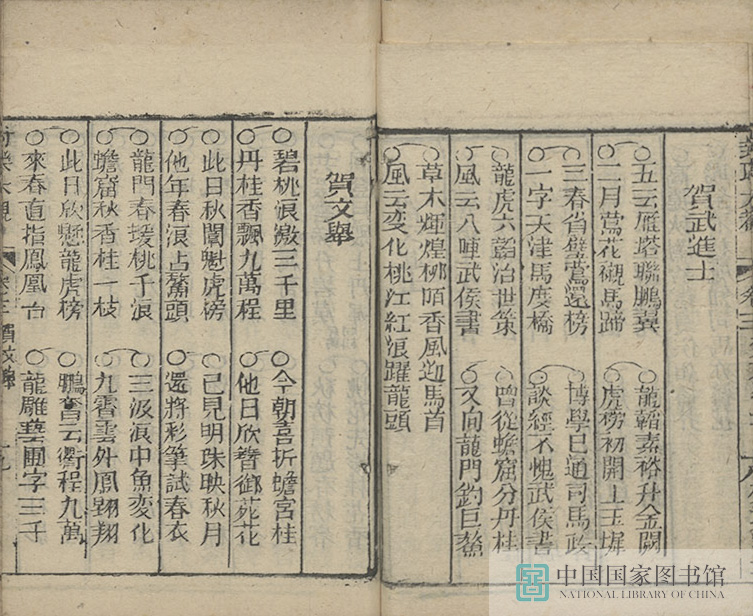 賀武進士
五云雁塔聯鵬翼
龍韜素裕升金闕
二月鶯花襯馬蹄
虎榜初開上玉墀
三春省璧鶯還榜
博學已通司馬政
一字天津馬度橋
談經不愧武侯書
龍虎六韜治世策
曾從蟾窟分丹桂
風云八陣武侯書
又向龍門釣巨鰲
草木輝煌柳陌香風迎馬首
風云变化桃江紅浪躍龍頭
賀文舉
碧桃浪激三千里
今朝喜折蟾宮桂
丹桂香飄九萬程
他日欣簪御苑花
此日秋闈魁虎榜
已見明珠映秋月
他年春浪占鰲頭
還將彩筆試春衣
龍門春援桃千浪
三汲浪中魚变化
蟾窟秋香桂一枝
九霄雲外鳳翱翔
此日欣懸龍虎榜
鵬奮云衢程九萬
來春直指鳳凰台
龍雕藝圃字三千
中国国家图书馆
NATIONAL LIBRARY OF CHINA